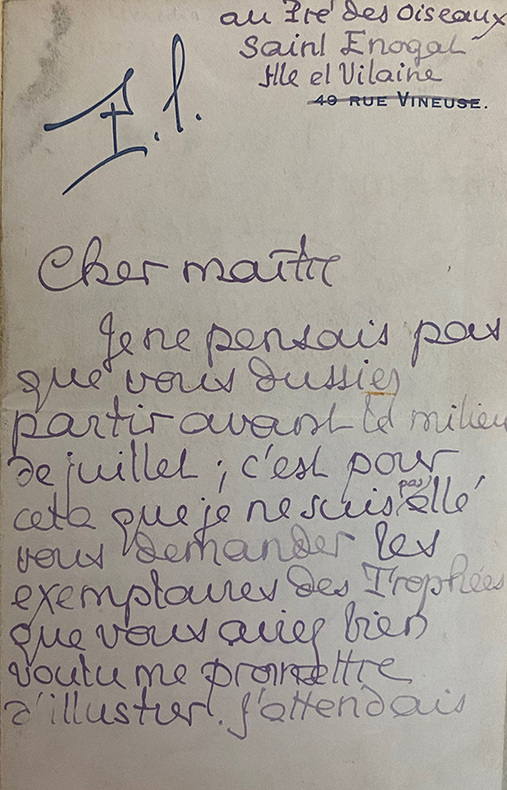 au Pré des Oiseaux
Saint Enogat
Ille et Vilaine
49 RUE VINEUSE.
P. l.
Cher maître
Je ne pensais pas
que vous dussiez
partir avant le milieu
de juillet ; c'est pour
cela que je ne suis pas allé
vous demander les
exemplaires des Trophées
que vous aviez bien
voulu me promettre
d'illustrer. J'attendais